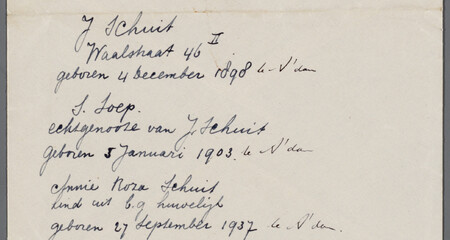 J Schuit
Waalstraat 46 II
geboren 4 December 1898 te A'dam
S. Soep.
echtgenoote van J. Schuit
geboren 5 Januari 1903. te A'dam
Annie Roza Schuit
kind uit b.g huwelijk
geboren 27 September 1937 te A'dam.